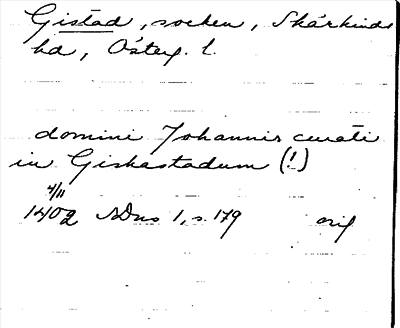 Gistad, socken, Skärkinds
hd, Österg. l.
domini Johannis curati
in Giskastadum (!)
4/11
1402 SDns 1, s. 179 orig